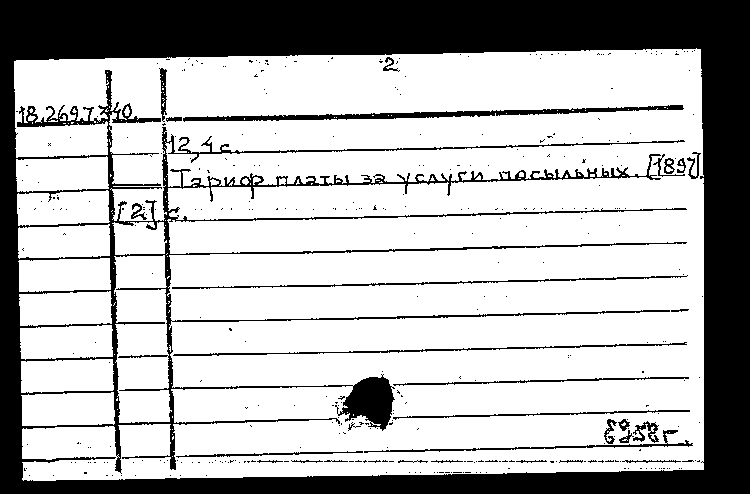 2
18.269.7.340.
12,4 с.
Тариф платы за услуги посыльных. [1897].
[2] с.